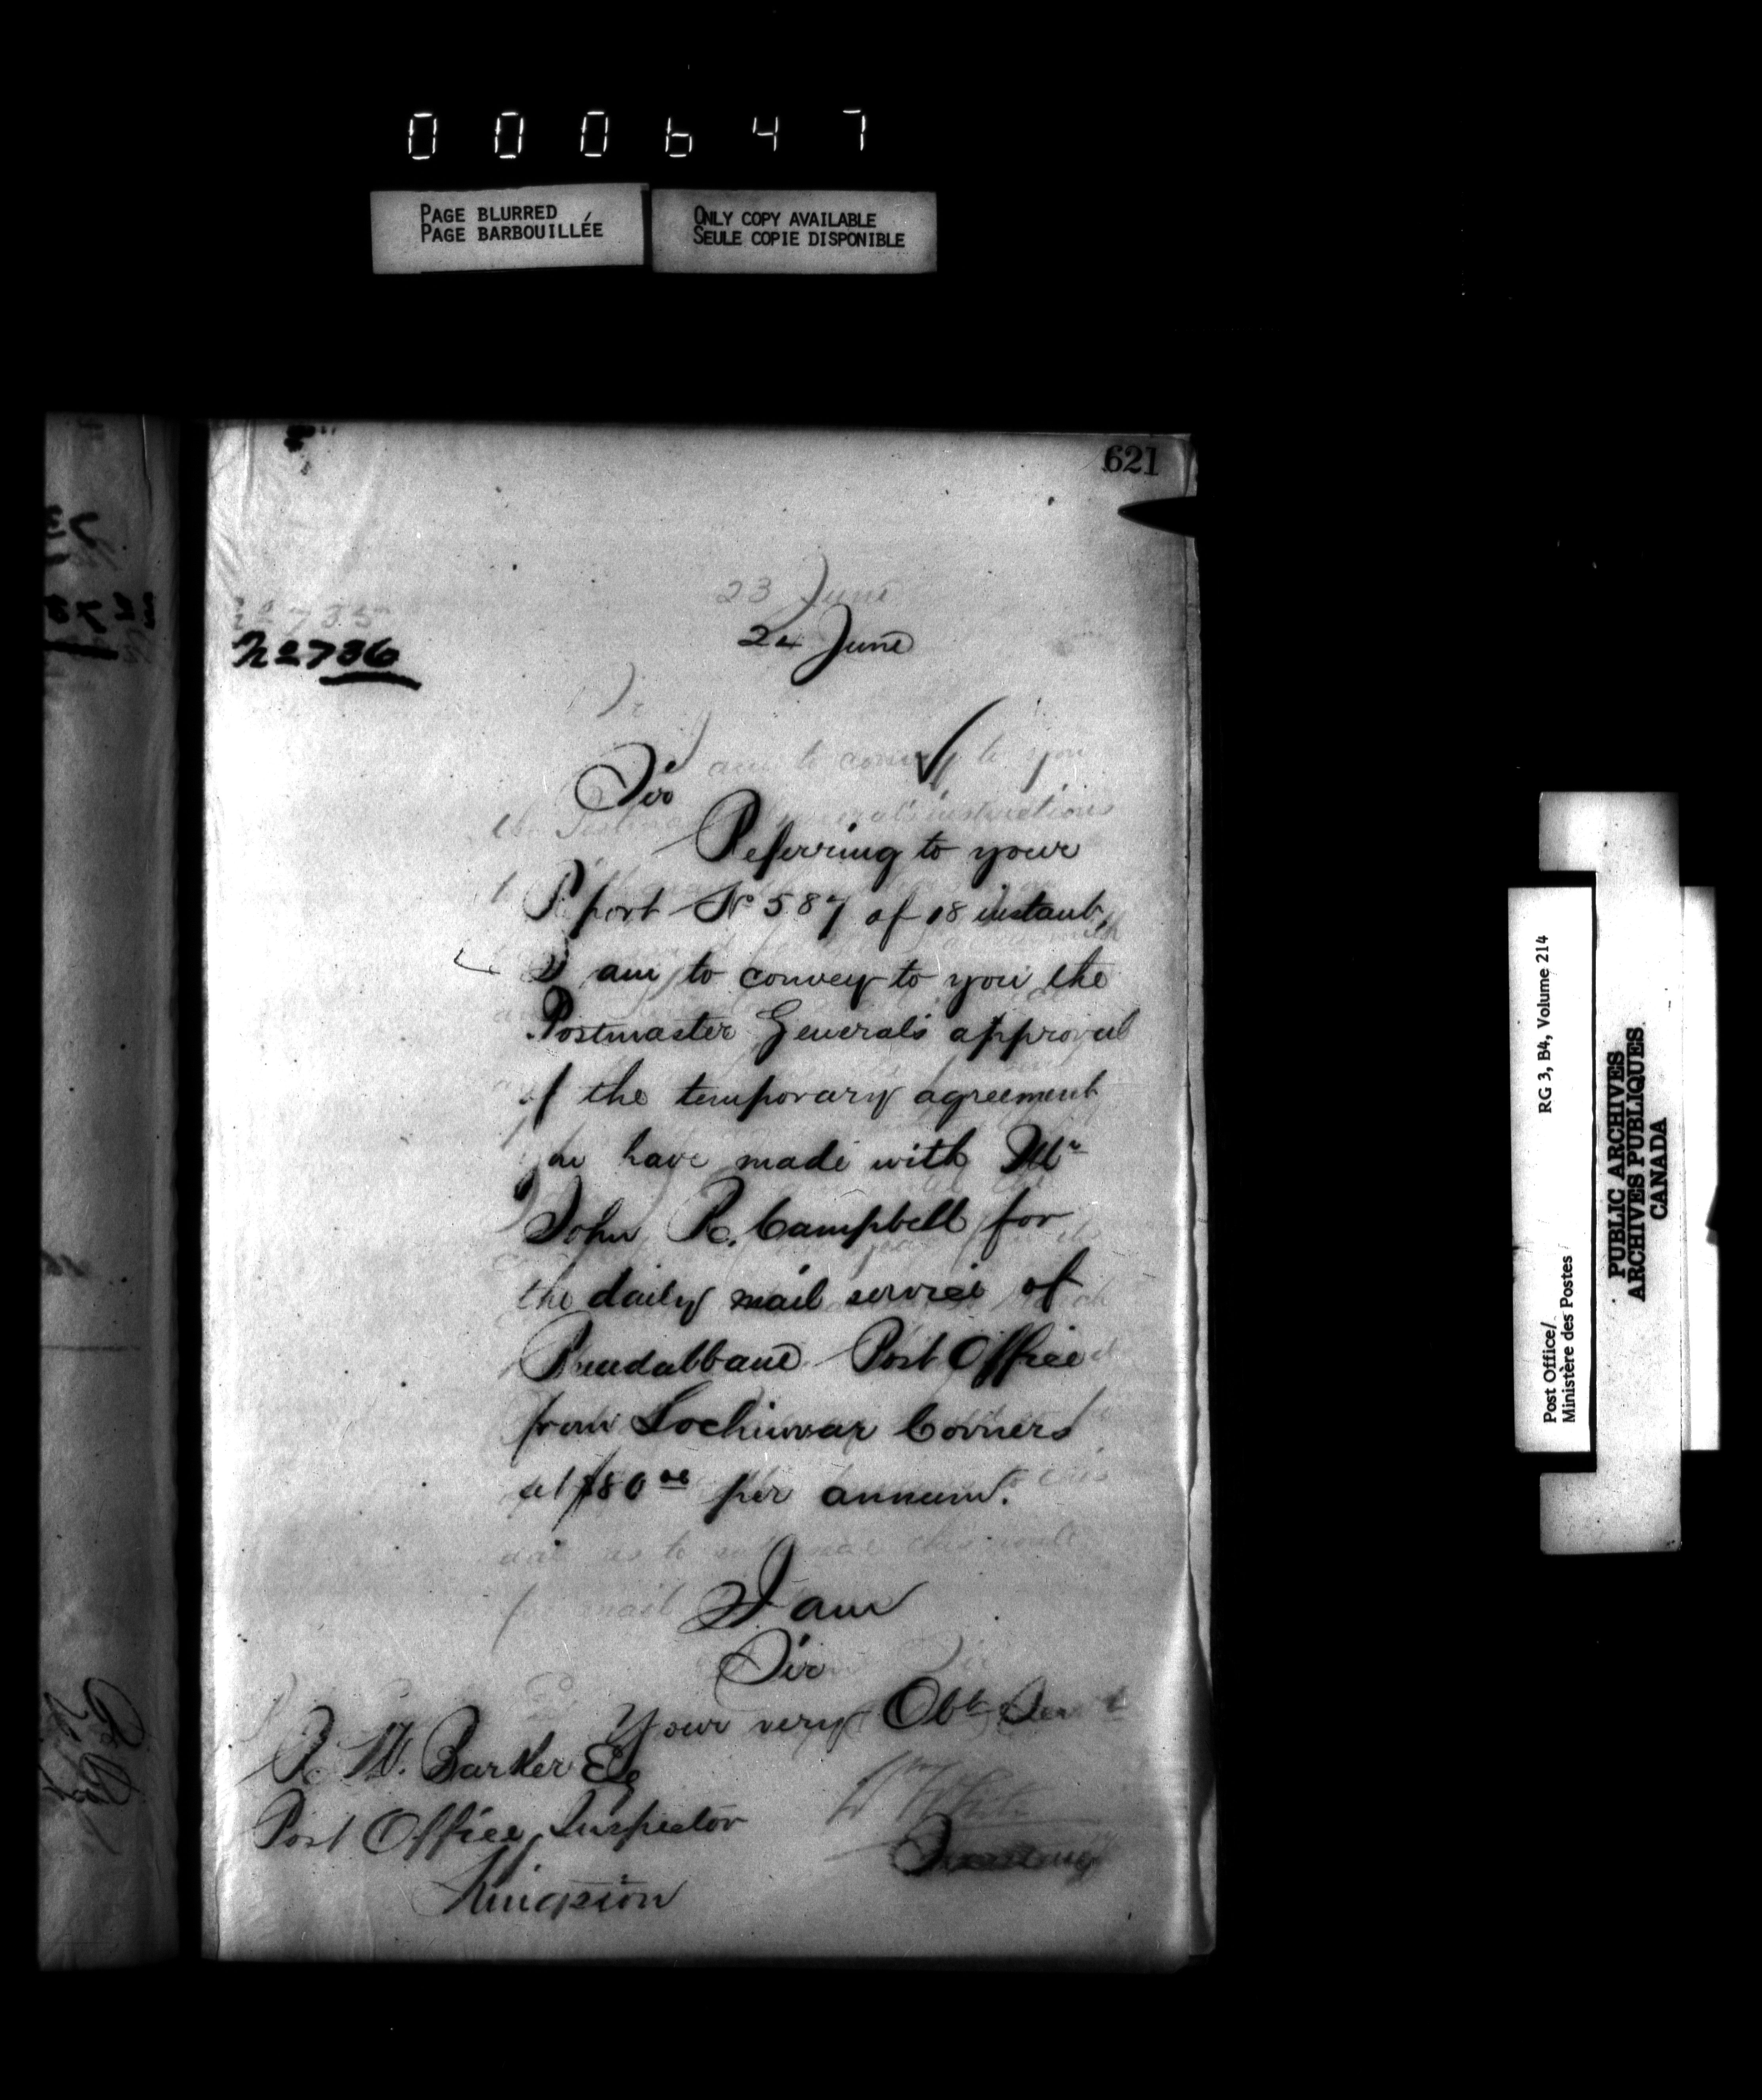 000647
PAGE BLURRED
PAGE BARBOUILLÉE
ONLY COPY AVAILABLE
SEULE COPIE DISPONIBLE
621
23 June
No 735
24 June
No 736
Sir
Referring to your
Report No 587 of 18 instant,
I am to convey to you the
Postmaster General's approval
of the temporary agreement
you have made with Mr
John R. Campbell for
the daily mail service of
Breadalbane Post Office
from Lochinvar Corners
at $80 00 per annum.
I am
Sir
Your very Obt Servt
R. W. Barker Esq
Post Office Inspector
Kingston
W White
Secretary
RG 3, B4, Volume 214
Post Office/
Ministère des Postes
PUBLIC ARCHIVES
ARCHIVES PUBLIQUES
CANADA